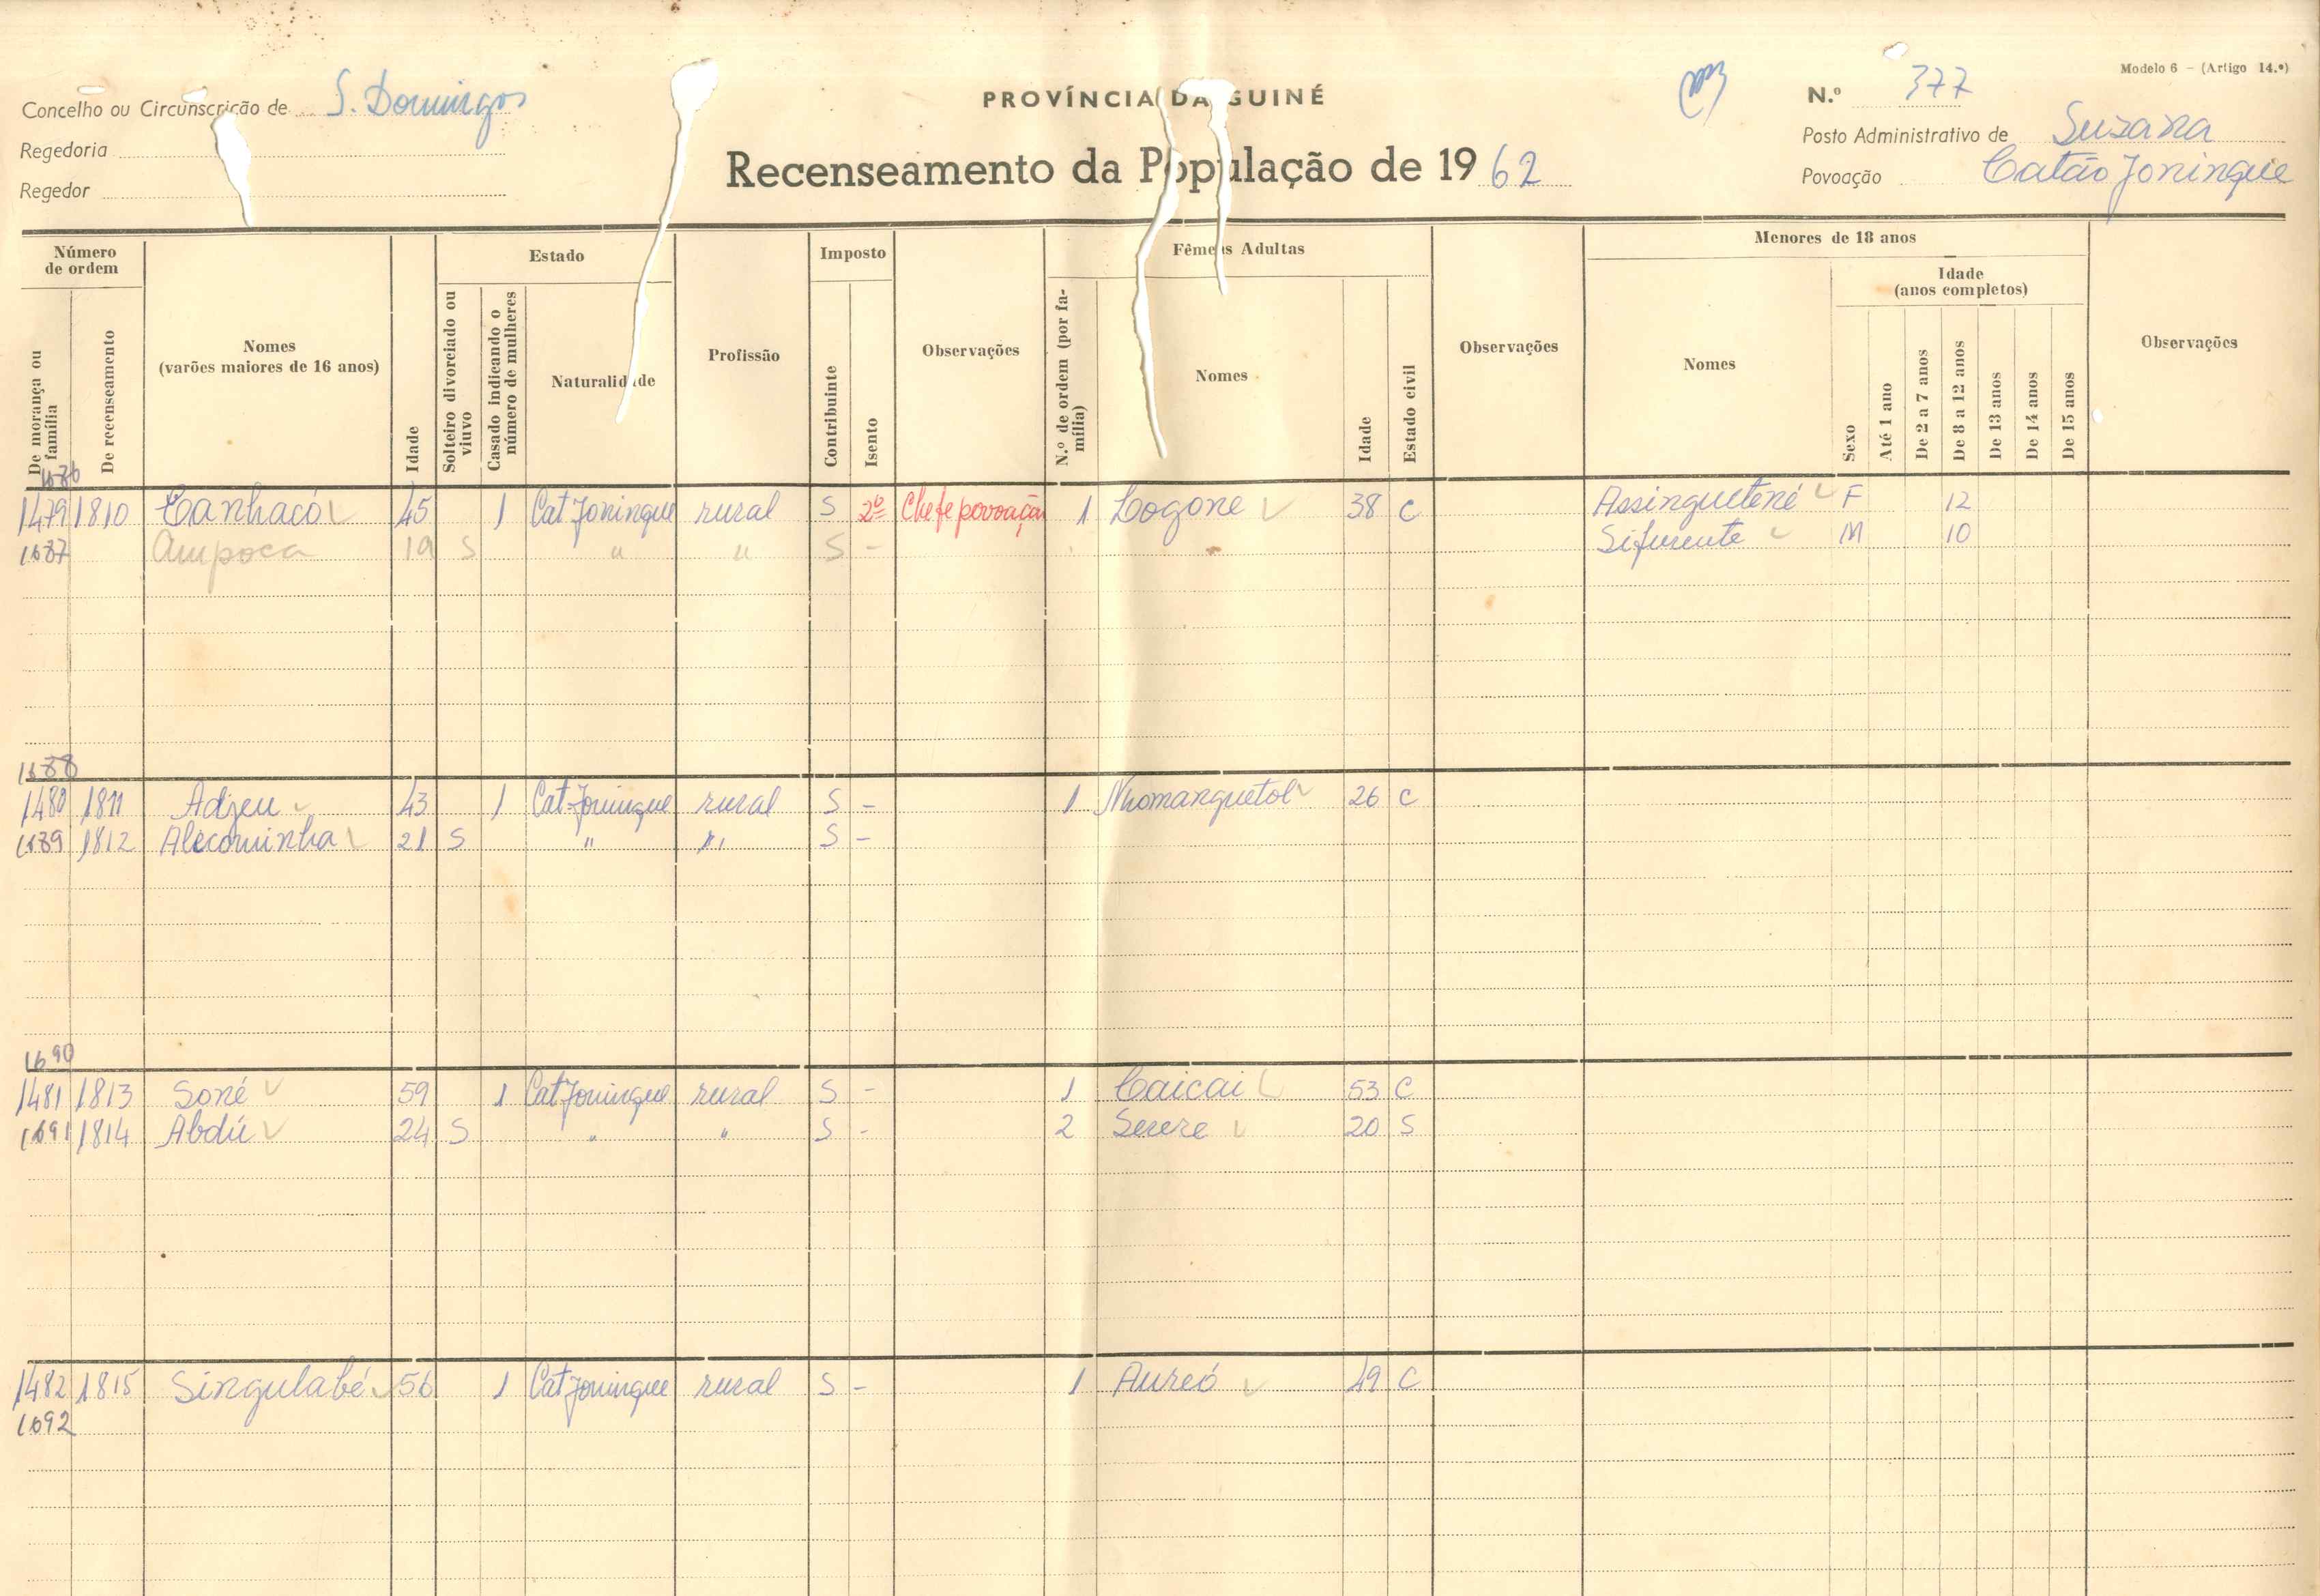 Modelo 6 - (Artigo 14.º)
Concelho ou Circunscrição de S. Domingos
PROVÍNCIA DA GUINÉ
N.º 377
Regedoria
Posto Administrativo de Suzana
Regedor
Recenseamento da População de 1962
Povoação Catão Joningue
Número de ordem
Estado
Imposto
Fêmeas Adultas
Menores de 18 anos
Idade
(anos completos)
De morança ou família
De recenseamento
Nomes
(varões maiores de 16 anos)
Idade
Solteiro divorciado ou viuvo
Casado indicando o número de mulheres
Naturalidade
Profissão
Contribuinte
Isento
Observações
N.º de ordem (por família)
Nomes
Idade
Estado civil
Observações
Nomes
Sexo
Até 1 ano
De 2 a 7 anos
De 8 a 12 anos
De 13 anos
De 14 anos
De 15 anos
Observações
1479 1810 Canhacó 45 1 Cat Joningue rural S 2º Chefe povoação 1 Logone 38 C Assingueténé F 12
1687 Ampoca 19 S " " S - Sifurente M 10
1688
1480 1811 Adjeu 43 1 Cat Joningue rural S - 1 Nhomanguetol 26 C
1689 1812 Alecominha 21 S " " S -
1690
1481 1813 Soné 59 1 Cat Joningue rural S - 1 Caicai 53 C
1691 1814 Abdú 24 S " " S - 2 20 S
1482 1815 Singulabé 56 1 Cat Joningue rural S - 1 Aureó 49 C
1692